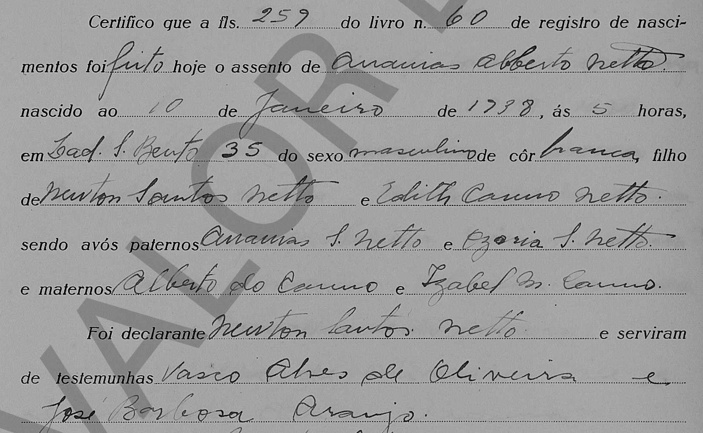 Certifico que a fls. 259 do livro n. 60 de registro de nasci-
mentos foi feito hoje o assento de Ananias Alberto Netto.
nascido ao 10 de Janeiro de 1938, ás 5 horas,
em Lad. S. Bento 35 do sexo masculino de côr branca, filho
de Newton Santos Netto e Edith Carmo Netto.
sendo avós paternos Ananias S. Netto e Ozoria S. Netto.
e maternos Alberto do Carmo e Izabel M. Carmo.
Foi declarante Newton Santos Netto e serviram
de testemunhas Vasco Alves de Oliveira e
José Barbosa Araujo.
VALOR